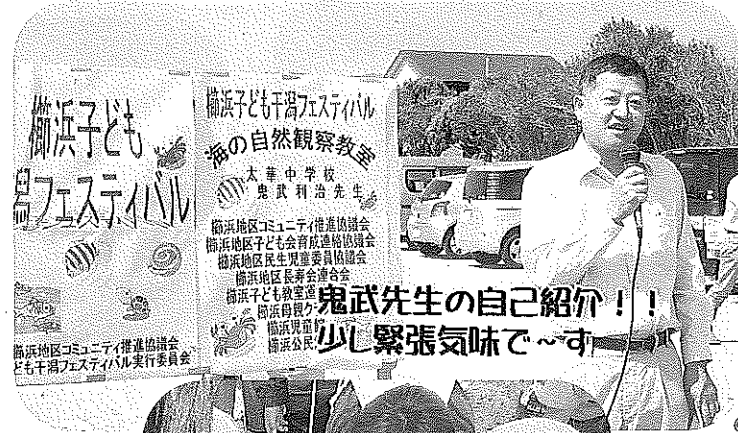 櫛浜子ども
潟フェスティバル
櫛浜地区コミュニティ推進協議会
ども干潟フェスティバル実行委員会
櫛浜子ども干潟フェスティバル
海の自然観察教室
太華中学校
鬼武利治先生
櫛浜地区コミュニティ推進協議会
櫛浜地区子ども会育成連絡協議会
櫛浜地区民生児童委員協議会
櫛浜地区長寿会連合会
櫛浜子ども教室運
櫛浜母親ク
櫛浜児童
櫛浜公民
鬼武先生の自己紹介！！
少し緊張気味で～す